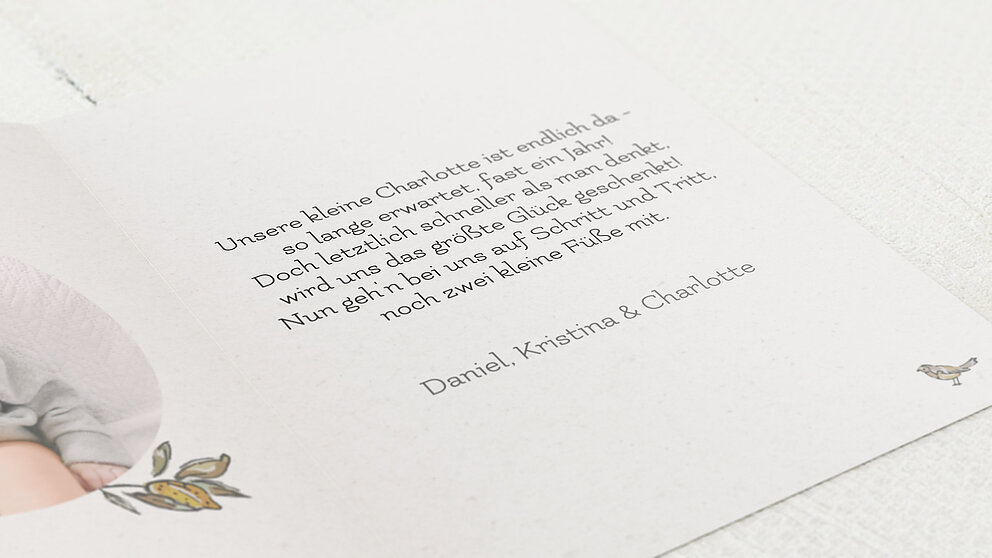 Unsere kleine Charlotte ist endlich da -
so lange erwartet, fast ein Jahr!
Doch letztlich schneller als man denkt,
wird uns das größte Glück geschenkt!
Nun geh'n bei uns auf Schritt und Tritt,
noch zwei kleine Füße mit.
Daniel, Kristina & Charlotte